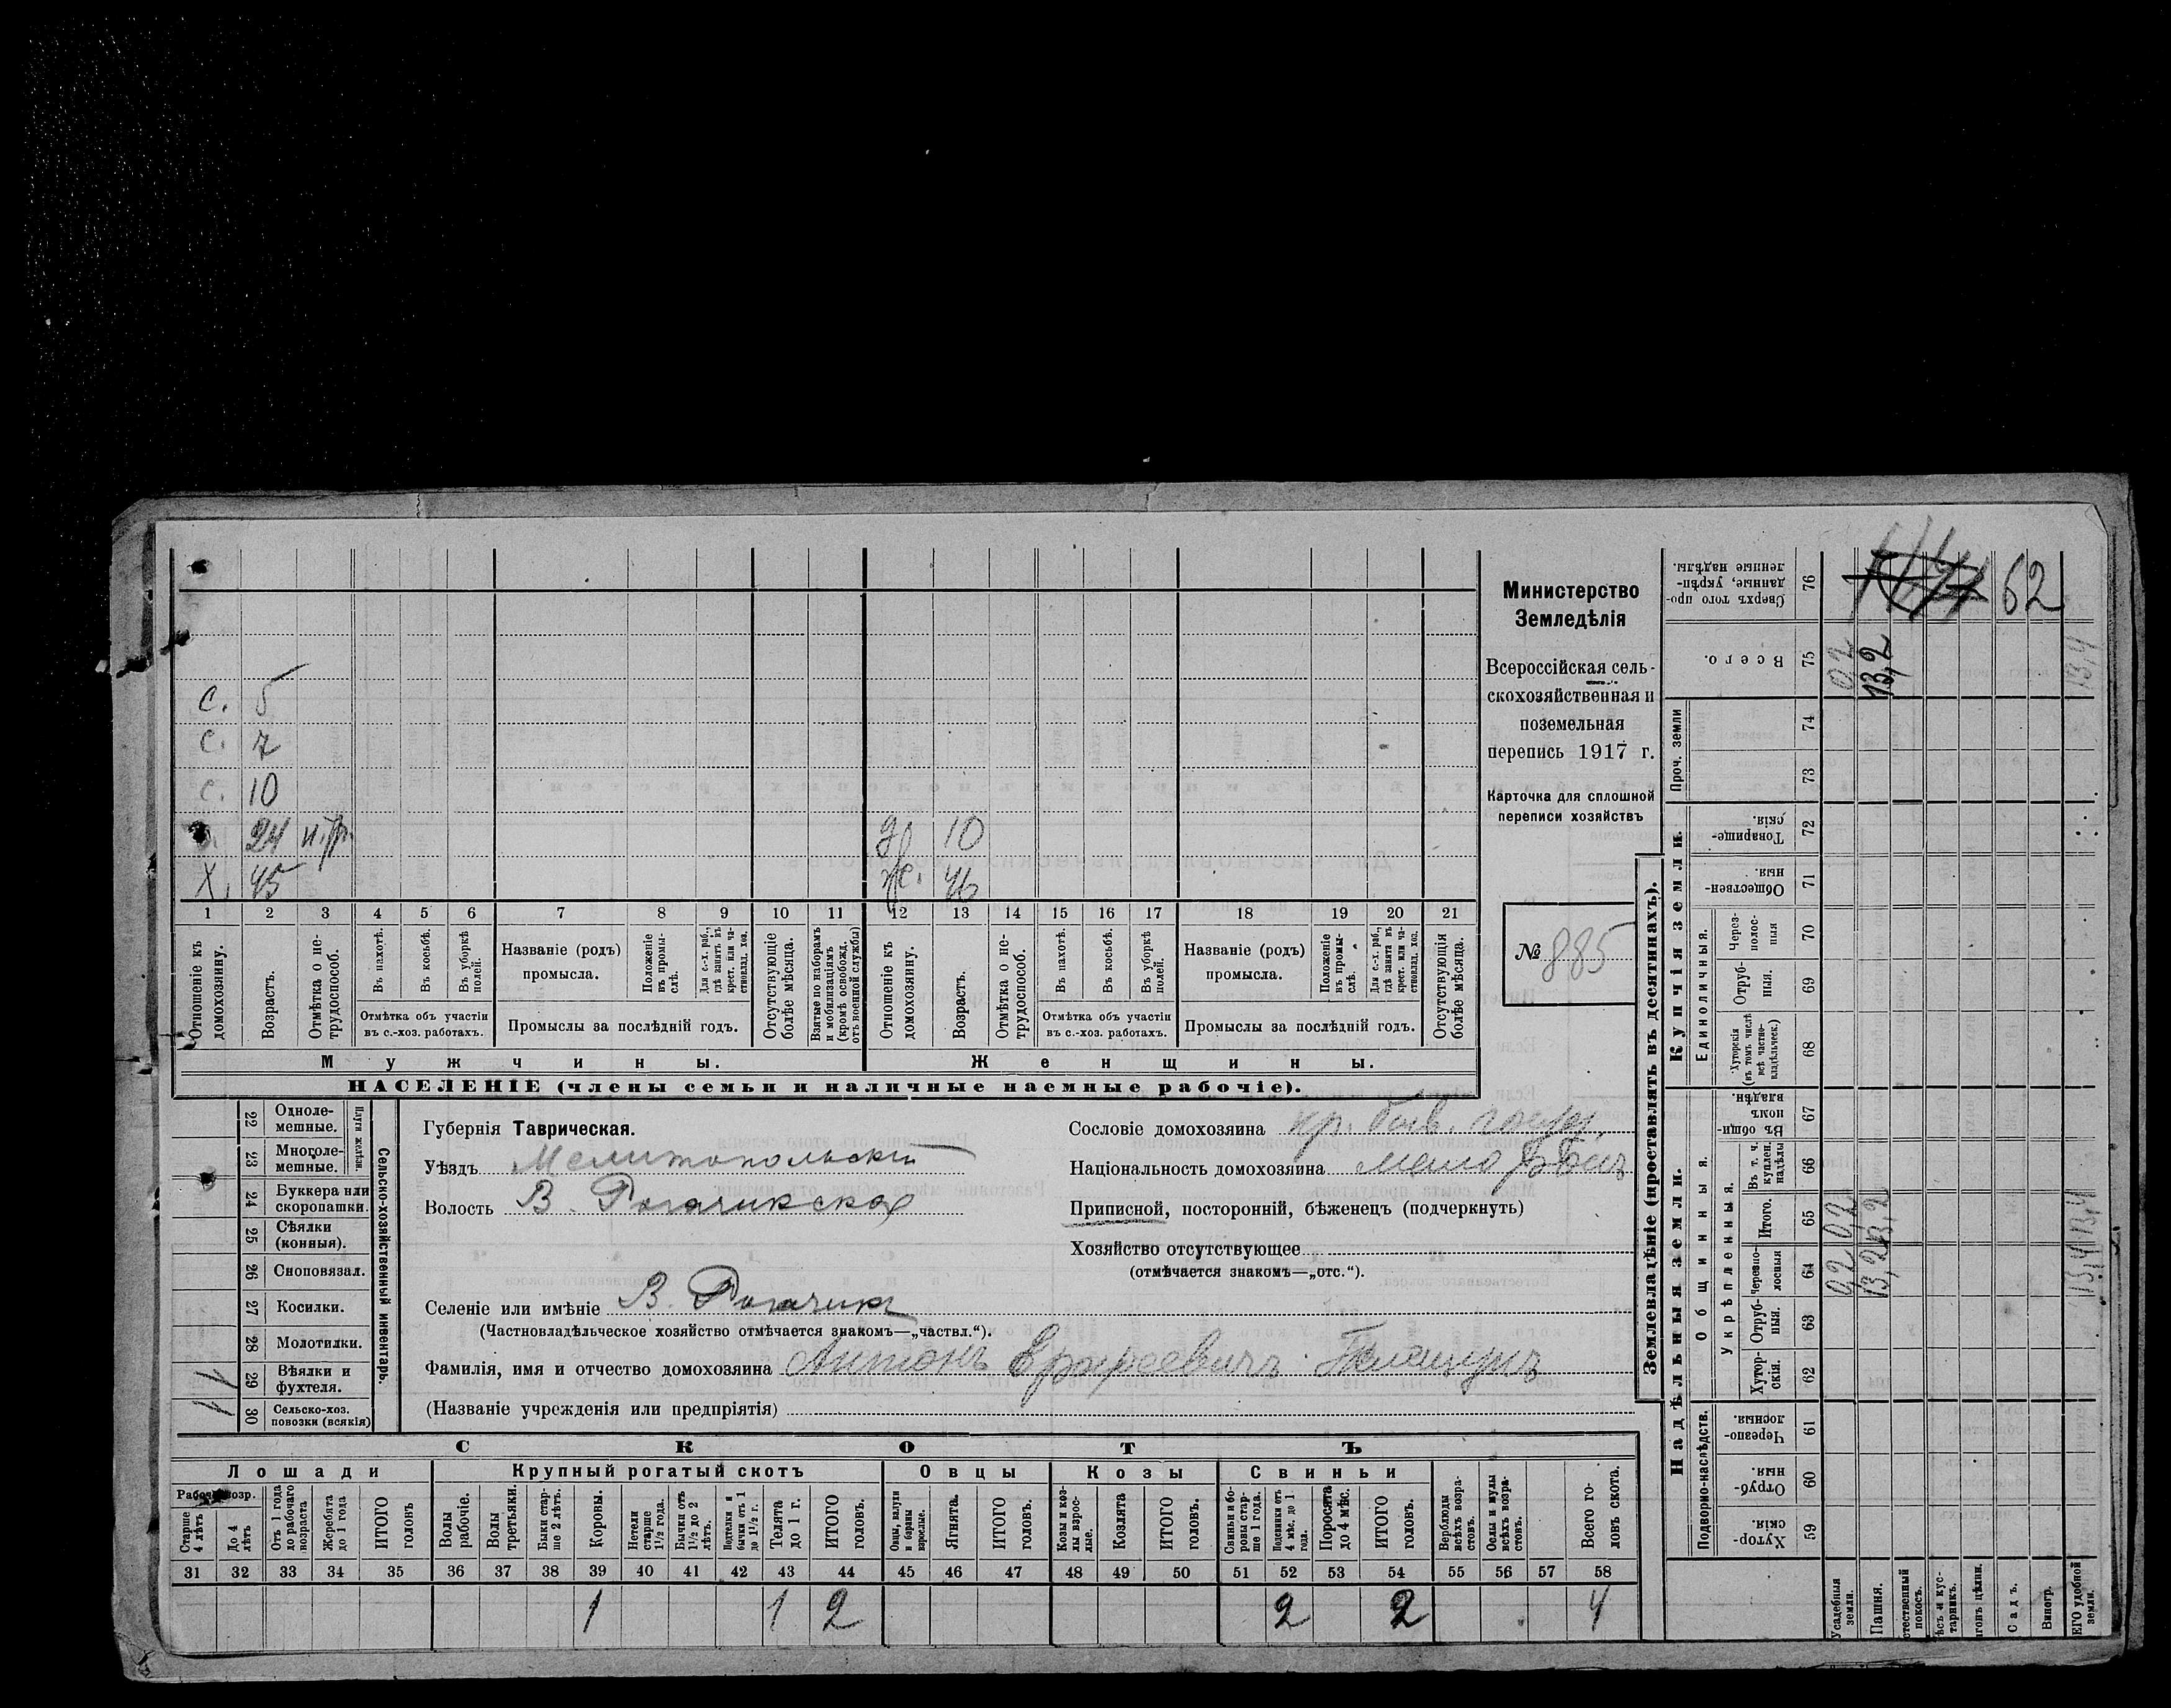 Министерство
Земледѣлія
Всероссійская сель-
скохозяйственная и
поземельная
перепись 1917 г.
Карточка для сплошной
переписи хозяйствъ
№ 885
С. 5
С. 7
С. 10
24 н.тр.
Х. 45
10
ж. 46
1 2 3 4 5 6 7 8 9 10 11 12 13 14 15 16 17 18 19 20 21
Отношеніе къ домохозяину.
Возрастъ.
Отмѣтка о не-трудоспособ.
Въ пахотѣ.
Въ косьбѣ.
Въ уборкѣ полей.
Отмѣтка объ участіи въ с.-хоз. работахъ.
Названіе (родъ) промысла.
Положеніе въ промы-слѣ.
Для с.-х. раб., гдѣ занятъ въ крест. или ча-стновлад. хоз.
Промыслы за послѣдній годъ.
Отсутствующіе болѣе мѣсяца.
Взятые по наборамъ и мобилизаціямъ (кромѣ освобожд. отъ военной службы)
Отношеніе къ домохозяину.
Возрастъ.
Отмѣтка о не-трудоспособ.
Въ пахотѣ.
Въ косьбѣ.
Въ уборкѣ полей.
Отмѣтка объ участіи въ с.-хоз. работахъ.
Названіе (родъ) промысла.
Положеніе въ промы-слѣ.
Для с.-х. раб., гдѣ занята въ крест. или ча-стновлад. хоз.
Промыслы за послѣдній годъ.
Отсутствующія болѣе мѣсяца.
Мужчины. Женщины.
НАСЕЛЕНІЕ (члены семьи и наличные наемные рабочіе).
Сельско-хозяйственный инвентарь.
Плуги желѣзн.
22 Одноле-мешные.
23 Многоле-мешные.
24 Буккера или скоропашки.
25 Сѣялки (конныя).
26 Сноповязал.
27 Косилки.
28 Молотилки.
29 Вѣялки и фухтеля.
30 Сельско-хоз. повозки (всякія)
Губернія Таврическая.
Уѣздъ Мелитопольскій
Волость В. Рогачикская
Селеніе или имѣніе В. Рогачикъ
(Частновладѣльческое хозяйство отмѣчается знакомъ—„частвл.“).
Фамилія, имя и отчество домохозяина Антонъ
(Названіе учрежденія или предпріятія)
Сословіе домохозяина кр. быв. госуд.
Національность домохозяина
Приписной, посторонній, бѣженецъ (подчеркнуть)
Хозяйство отсутствующее
(отмѣчается знакомъ—„отс.“).
СКОТЪ
Лошади Крупный рогатый скотъ Овцы Козы Свиньи
Рабоч. возр.
Старше 4 лѣтъ
До 4 лѣтъ
Отъ 1 года до рабочаго возраста
Жеребята до 1 года
ИТОГО головъ
Волы рабочіе.
Волы третьяки.
Быки стар-ше 2 лѣтъ.
Коровы.
Нетели старше 1½ года.
Бычки отъ 1½ до 2 лѣтъ.
Подтелки и бычки отъ 1 до 1½ г.
Телята до 1 г.
ИТОГО головъ.
Овцы, валухи и бараны взрослые.
Ягнята.
ИТОГО головъ.
Козы и коз-лы взрос-лые.
Козлята
ИТОГО головъ.
Свиньи и бо-ровы стар-ше 1 года.
Подсвинки отъ 4 мѣс. до 1 года.
Поросята до 4 мѣс.
ИТОГО головъ.
Верблюды всѣхъ возра-стовъ.
Ослы и мулы всѣхъ возра-стовъ.
Всего го-ловъ скота.
31 32 33 34 35 36 37 38 39 40 41 42 43 44 45 46 47 48 49 50 51 52 53 54 55 56 57 58
1 1 2 2 2 4
Землевладѣніе (проставлять въ десятинахъ).
Надѣльныя земли. Купчія земли. Проч. земли
Подворно-наслѣдств.
Общинныя.
Укрѣпленныя.
Единоличныя.
76 Сверхъ того про-данные, укрѣп-ленные надѣлы.
62
75 Всего. 0,2 13,2 13,4
74
73
72 Товарище-скія.
71 Обществен-ныя.
70 Через-полос-ныя
69 Отруб-ныя.
68 Хуторскія (въ томъ числѣ всѣ частно-владѣльческ.)
67 Въ общи-номъ владѣн.
66 Въ т. ч. куплен. надѣлы
65 Итого. 0,2 13,2 13,4
64 Черезпо-лосныя 0,2 13,2 13,4
63 Отруб-ныя.
62 Хутор-скія.
61 Черезпо-лосныя.
60 Отруб-ныя.
59 Хутор-скія.
Усадебныя земли.
Пашня.
Садъ.
Виногр.
ЕГО удобной земли.